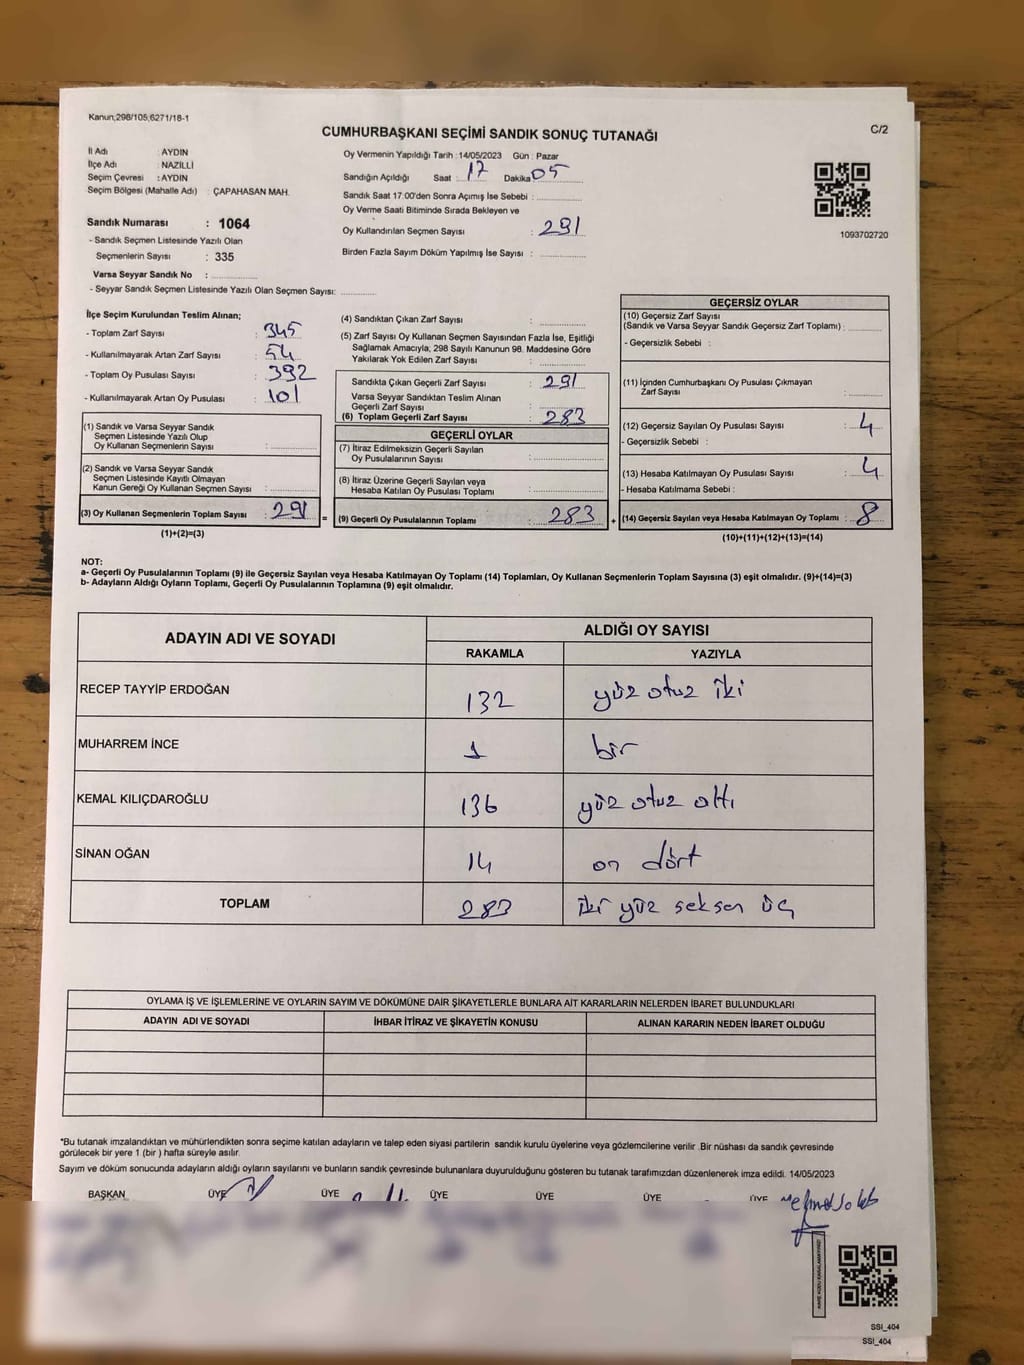 Kanun;298/105,6271/18-1
CUMHURBAŞKANI SEÇİMİ SANDIK SONUÇ TUTANAĞI
C/2
İl Adı : AYDIN
İlçe Adı : NAZİLLİ
Seçim Çevresi : AYDIN
Seçim Bölgesi (Mahalle Adı) : ÇAPAHASAN MAH.
Sandık Numarası : 1064
- Sandık Seçmen Listesinde Yazılı Olan
Seçmenlerin Sayısı : 335
Varsa Seyyar Sandık No :
- Seyyar Sandık Seçmen Listesinde Yazılı Olan Seçmen Sayısı:
Oy Vermenin Yapıldığı Tarih :14/05/2023 Gün : Pazar
Sandığın Açıldığı Saat : 17 Dakika : 05
Sandık Saat 17:00'den Sonra Açımış İse Sebebi :
Oy Verme Saati Bitiminde Sırada Bekleyen ve
Oy Kullandırılan Seçmen Sayısı : 291
Birden Fazla Sayım Döküm Yapılmış İse Sayısı :
1093702720
İlçe Seçim Kurulundan Teslim Alınan;
- Toplam Zarf Sayısı : 345
- Kullanılmayarak Artan Zarf Sayısı : 54
- Toplam Oy Pusulası Sayısı : 392
- Kullanılmayarak Artan Oy Pusulası : 101
(1) Sandık ve Varsa Seyyar Sandık
Seçmen Listesinde Yazılı Olup
Oy Kullanan Seçmenlerin Sayısı :
(2) Sandık ve Varsa Seyyar Sandık
Seçmen Listesinde Kayıtlı Olmayan
Kanun Gereği Oy Kullanan Seçmen Sayısı :
(3) Oy Kullanan Seçmenlerin Toplam Sayısı : 291
(1)+(2)=(3)
(4) Sandıktan Çıkan Zarf Sayısı :
(5) Zarf Sayısı Oy Kullanan Seçmen Sayısından Fazla İse, Eşitliği
Sağlamak Amacıyla; 298 Sayılı Kanunun 98. Maddesine Göre
Yakılarak Yok Edilen Zarf Sayısı :
Sandıkta Çıkan Geçerli Zarf Sayısı : 291
Varsa Seyyar Sandıktan Teslim Alınan
Geçerli Zarf Sayısı :
(6) Toplam Geçerli Zarf Sayısı : 283
GEÇERLİ OYLAR
(7) İtiraz Edilmeksizin Geçerli Sayılan
Oy Pusulalarının Sayısı :
(8) İtiraz Üzerine Geçerli Sayılan veya
Hesaba Katılan Oy Pusulası Toplamı :
= (9) Geçerli Oy Pusulalarının Toplamı : 283 +
GEÇERSİZ OYLAR
(10) Geçersiz Zarf Sayısı
(Sandık ve Varsa Seyyar Sandık Geçersiz Zarf Toplamı) :
- Geçersizlik Sebebi :
(11) İçinden Cumhurbaşkanı Oy Pusulası Çıkmayan
Zarf Sayısı :
(12) Geçersiz Sayılan Oy Pusulası Sayısı : 4
- Geçersizlik Sebebi :
(13) Hesaba Katılmayan Oy Pusulası Sayısı : 4
- Hesaba Katılmama Sebebi :
(14) Geçersiz Sayılan veya Hesaba Katılmayan Oy Toplamı : 8
(10)+(11)+(12)+(13)=(14)
NOT:
a- Geçerli Oy Pusulalarının Toplamı (9) ile Geçersiz Sayılan veya Hesaba Katılmayan Oy Toplamı (14) Toplamları, Oy Kullanan Seçmenlerin Toplam Sayısına (3) eşit olmalıdır. (9)+(14)=(3)
b- Adayların Aldığı Oyların Toplamı, Geçerli Oy Pusulalarının Toplamına (9) eşit olmalıdır.
ADAYIN ADI VE SOYADI ALDIĞI OY SAYISI
RAKAMLA YAZIYLA
RECEP TAYYİP ERDOĞAN 132 yüz otuz iki
MUHARREM İNCE 1 bir
KEMAL KILIÇDAROĞLU 136 yüz otuz altı
SİNAN OĞAN 14 on dört
TOPLAM 283 iki yüz seksen üç
OYLAMA İŞ VE İŞLEMLERİNE VE OYLARIN SAYIM VE DÖKÜMÜNE DAİR ŞİKAYETLERLE BUNLARA AİT KARARLARIN NELERDEN İBARET BULUNDUKLARI
ADAYIN ADI VE SOYADI İHBAR İTİRAZ VE ŞİKAYETİN KONUSU ALINAN KARARIN NEDEN İBARET OLDUĞU
*Bu tutanak imzalandıktan ve mühürlendikten sonra seçime katılan adayların ve talep eden siyasi partilerin sandık kurulu üyelerine veya gözlemcilerine verilir .Bir nüshası da sandık çevresinde
görülecek bir yere 1 (bir ) hafta süreyle asılır.
Sayım ve döküm sonucunda adayların aldığı oyların sayılarını ve bunların sandık çevresinde bulunanlara duyurulduğunu gösteren bu tutanak tarafımızdan düzenlenerek imza edildi. 14/05/2023
BAŞKAN ÜYE ÜYE ÜYE ÜYE ÜYE ÜYE
SSI_404
SSI_404